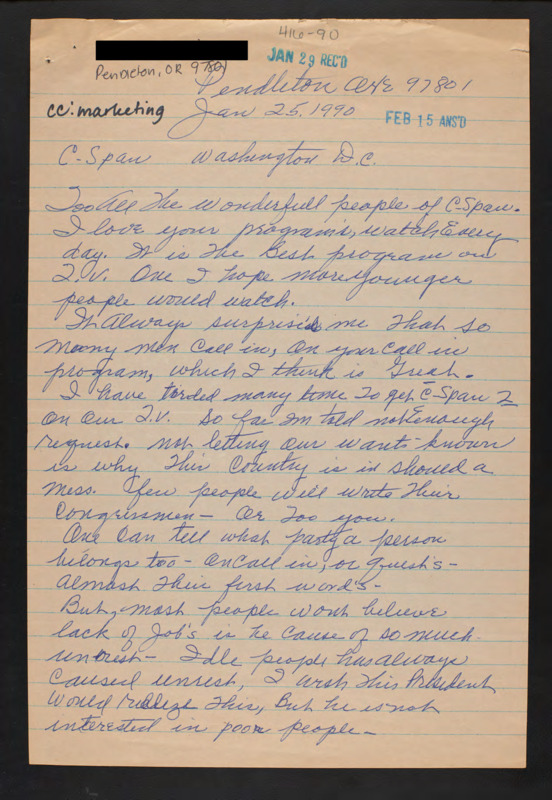 416-90
JAN 29 REC'D
Pendleton, OR 97801
Pendleton ORE 97801
cc: marketing
Jan 25, 1990
FEB 15 ANS'D
C-Span Washington D.C.
Too All the wonderfull people of C-Span.
I love your programs, watch Every
day. It is the Best program on
T.V. One I hope more younger
people would watch.
It Always surprises me that so
many men call in, on your call in
program, which I think is Great.
I have many time To get C-Span 2
on our T.V. So far Im told not Enough
request. not letting our wants known
is why This Country is in should a
mess. few people will write Their
Congressmen - Or Too you.
One Can tell what party a person
belongs too - on call in, or guest's -
almost Their first word's -
But, most people wont believe
lack of Job's is he Cause of so much
unrest - Idle people has always
caused unrest, I wish This President
Would realize This, But he is not
interested in poor people -